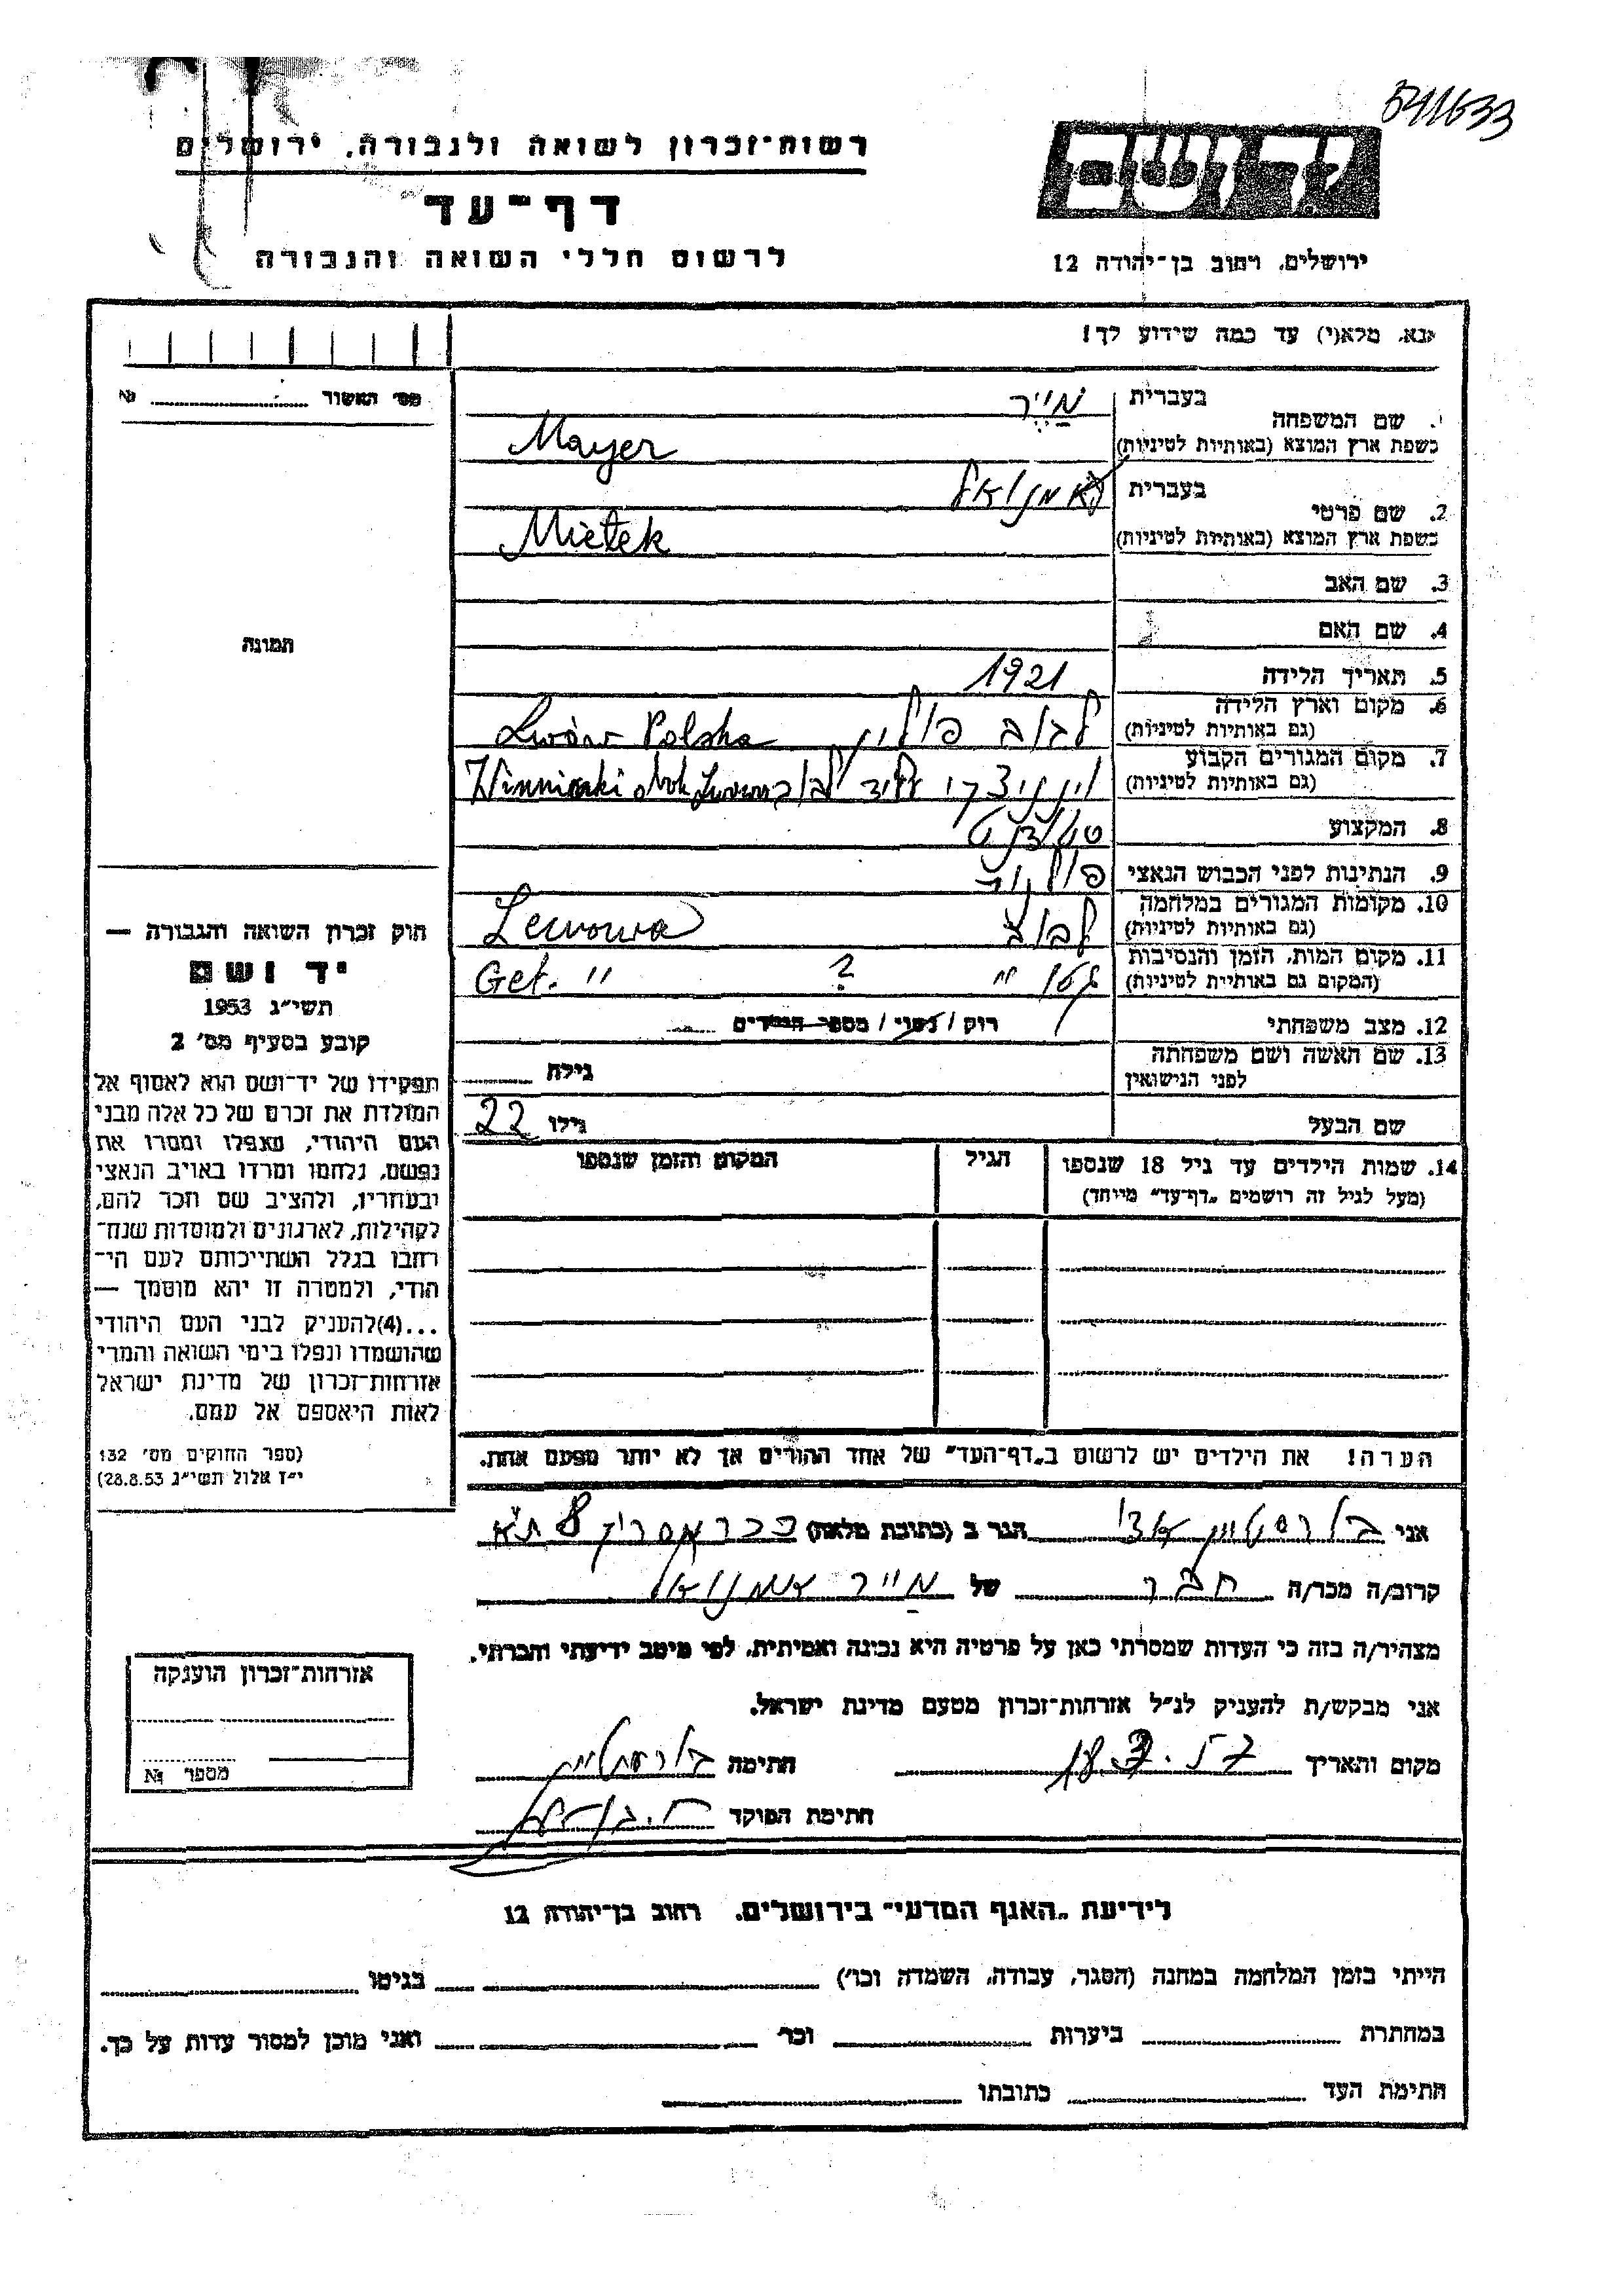 541633
רשות־זכרון לשואה ולגבורה, ירושלים
דף־עד
לרשום חללי השואה והגבורה
יד ושם
ירושלים, רחוב בן־יהודה 12
נא מלא(י) עד כמה שידוע לך!
מס' האשור № 
1. שם המשפחה בעברית מַיֶיר
כשפת ארץ המוצא (באותיות לטיניות) Mayer
2. שם פרטי בעברית עמנואל
כשפת ארץ המוצא (באותיות לטיניות) Mietek
3. שם האב
4. שם האם
תמונה
5. תאריך הלידה 1921
6. מקום וארץ הלידה לבוב פולין Lwów Polska
(גם באותיות לטיניות)
7. מקום המגורים הקבוע ויניצקי על יד לבוב
(גם באותיות לטיניות)
8. המקצוע סטודנט
9. הנתינות לפני הכבוש הנאצי פולנית
10. מקומות המגורים במלחמה לבוב
(גם באותיות לטיניות)
11. מקום המות, הזמן והנסיבות גטו " ? Get. "
(המקום גם באותיות לטיניות)
12. מצב משפחתי רווק / נשוי / מספר הילדים
13. שם האשה ושם משפחתה לפני הנישואין גילה
שם הבעל גילו 22
14. שמות הילדים עד גיל 18 שנספו הגיל המקום והזמן שנספו
(מעל לגיל זה רושמים „דף־עד" מייחד)
חוק זכרון השואה והגבורה —
יד ושם
תשי"ג 1953
קובע בסעיף מס' 2
תפקידו של יד־ושם הוא לאסוף אל
המולדת את זכרם של כל אלה מבני
העם היהודי, שנפלו ומסרו את
נפשם, נלחמו ומרדו באויב הנאצי
ובעוזריו, ולהציב שם וזכר להם,
לקהילות, לארגונים ולמוסדות שנח־
רבו בגלל השתייכותם לעם הי־
הודי, ולמטרה זו יהא מוסמך —
...(4) להעניק לבני העם היהודי
שהושמדו ונפלו בימי השואה והמרי
אזרחות־זכרון של מדינת ישראל
לאות היאספם אל עמם.
(ספר החוקים מס' 132
י"ז אלול תשי"ג 28.8.53)
הערה! את הילדים יש לרשום ב„דף־העד" של אחד ההורים אך לא יותר מפעם אחת.
אני הגר ב (כתובת מלאה) 8 ת"א
קרוב/ה מכר/ה חבר של מַייר עמנואל
מצהיר/ה בזה כי העדות שמסרתי כאן על פרטיה היא נכונה ואמיתית, לפי מיטב ידיעתי והכרתי.
אני מבקש/ת להעניק לנ"ל אזרחות־זכרון מטעם מדינת ישראל.
מקום והתאריך חתימה
חתימת הפוקד
אזרחות־זכרון הוענקה
מספר №
לידיעת „האגף המדעי" בירושלים, רחוב בן־יהודה 12
הייתי בזמן המלחמה במחנה (הסגר, עבודה, השמדה וכו') בגיטו
במחתרת ביערות וכו' ואני מוכן למסור עדות על כך.
חתימת העד כתובתו